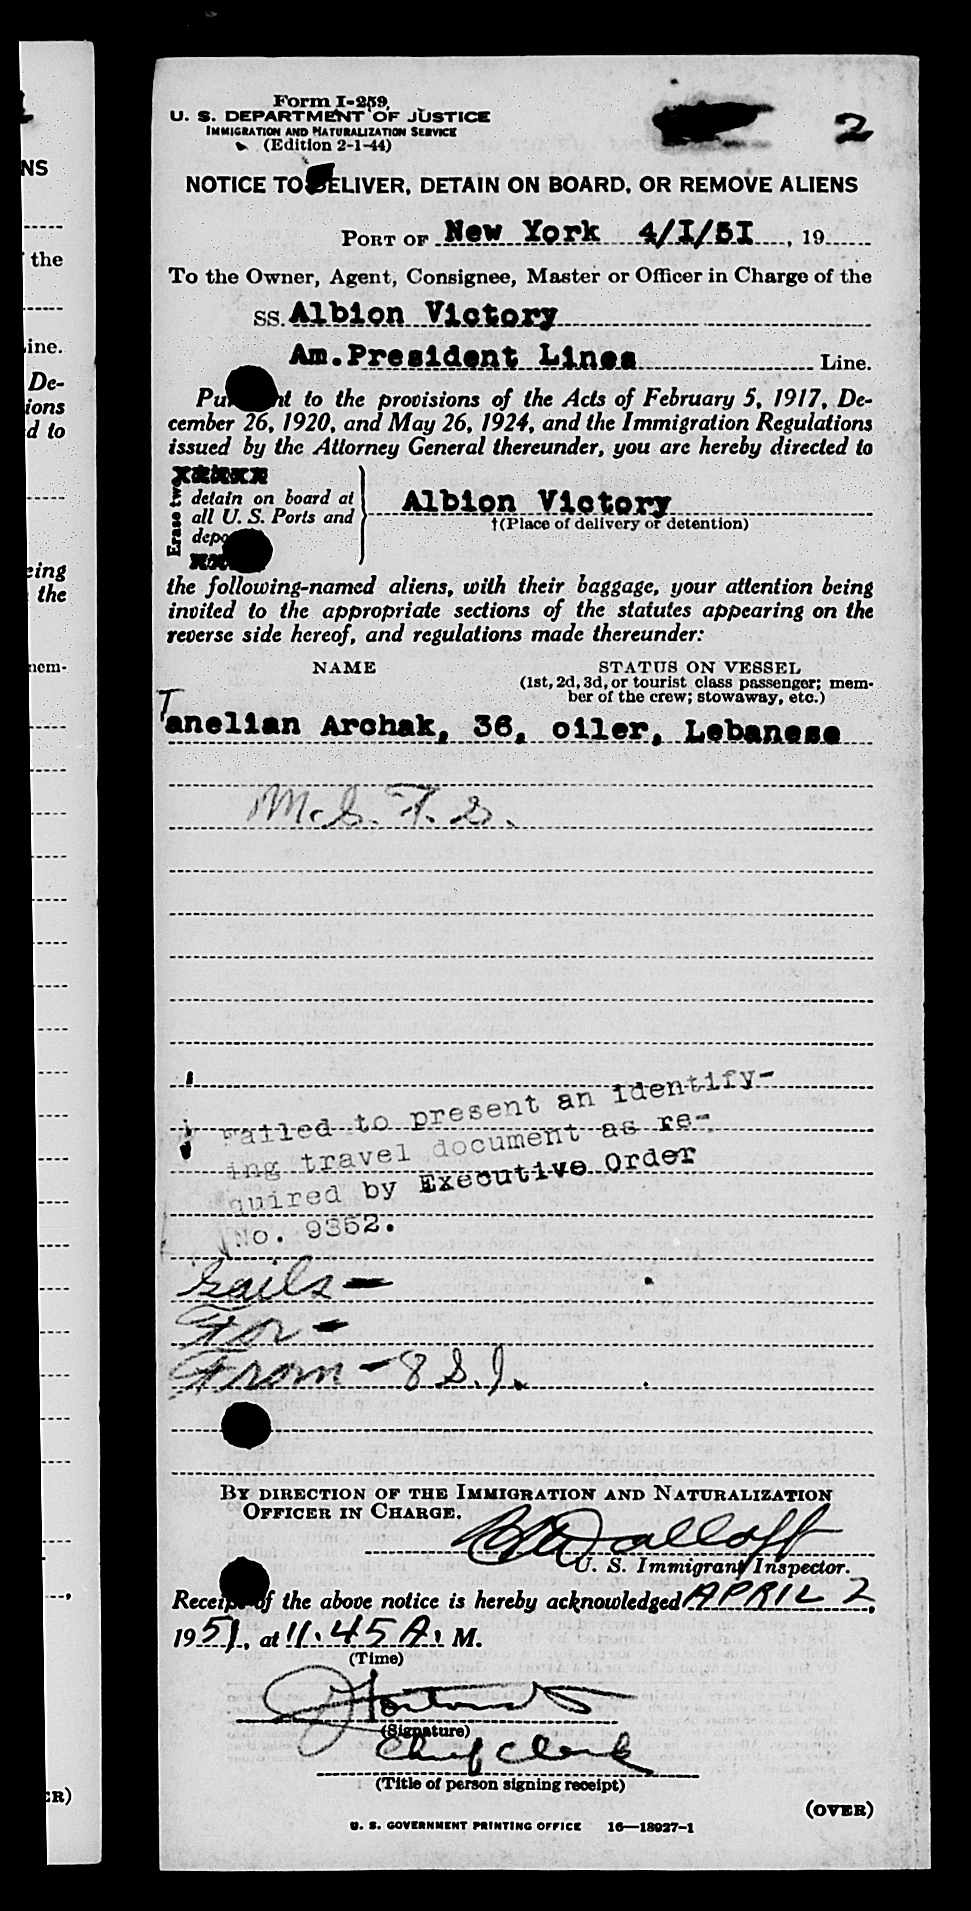 Form I-259
U. S. DEPARTMENT OF JUSTICE
IMMIGRATION AND NATURALIZATION SERVICE
(Edition 2-1-44)
2
NOTICE TO DELIVER, DETAIN ON BOARD, OR REMOVE ALIENS
PORT OF New York 4/I/5I, 19
To the Owner, Agent, Consignee, Master or Officer in Charge of the
SS. Albion Victory
Am.President Lines Line.
Pursuant to the provisions of the Acts of February 5, 1917, De-
cember 26, 1920, and May 26, 1924, and the Immigration Regulations
issued by the Attorney General thereunder, you are hereby directed to
Erase two
detain on board at
all U. S. Ports and
Albion Victory
†(Place of delivery or detention)
the following-named aliens, with their baggage, your attention being
invited to the appropriate sections of the statutes appearing on the
reverse side hereof, and regulations made thereunder:
NAME
STATUS ON VESSEL
(1st, 2d, 3d, or tourist class passenger; mem-
ber of the crew; stowaway, etc.)
Tanelian Archak, 36, oiler, Lebanese
Failed to present an identify-
ing travel document as re-
quired by Executive Order
No. 9352.
Sails -
For -
From - 8 S.I.
BY DIRECTION OF THE IMMIGRATION AND NATURALIZATION
OFFICER IN CHARGE.
U. S. Immigrant Inspector.
Receipt of the above notice is hereby acknowledged APRIL 2,
1951, at 11.45 A. M.
(Time)
(Signature)
Chief Clerk
(Title of person signing receipt)
(OVER)
U. S. GOVERNMENT PRINTING OFFICE 16—18927-1
NS
the
ine.
De-
ions
d to
eing
the
nem-
ER)